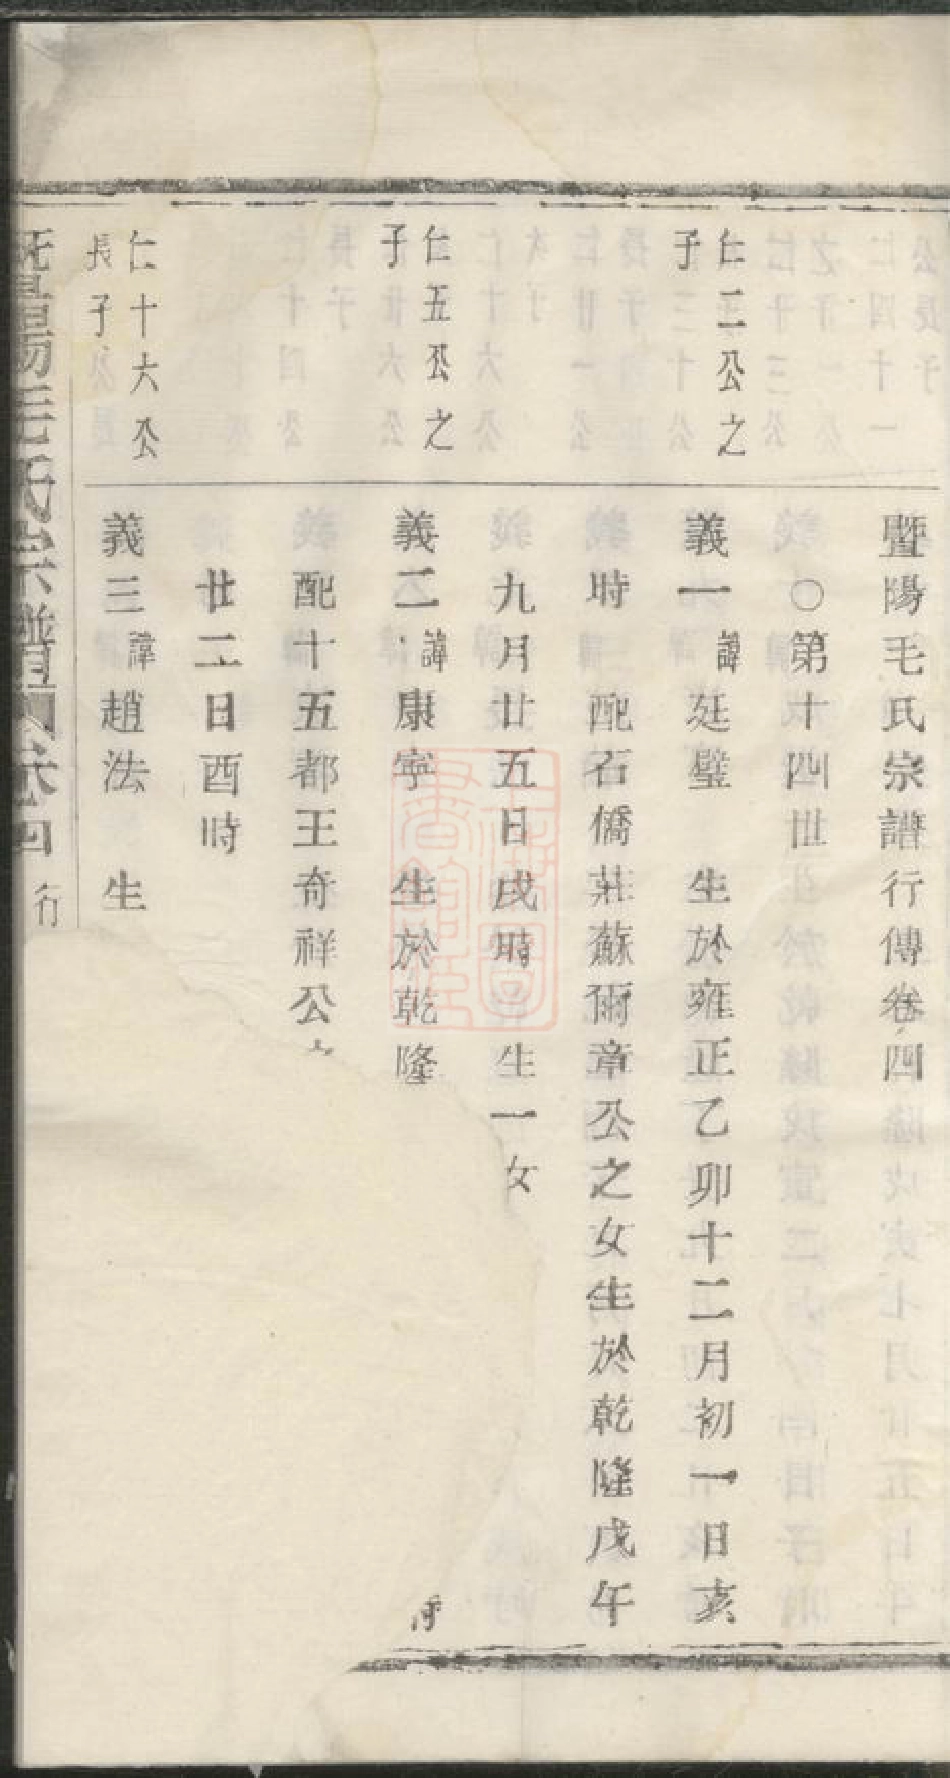 暨陽毛氏宗譜行傳卷四
○第十四世
仁二公之
子
義一諱廷璧 生於雍正乙卯十二月初一日亥
時 配石僑莊蘇爾章公之女生於乾隆戊午
九月廿五日戌時 生一女
仁五公之
子
義二諱康寧 生於乾隆
配十五都王奇祥公
廿二日酉時
仁十六公
長子
義三諱趙法 生
暨陽毛氏宗譜 卷四 行